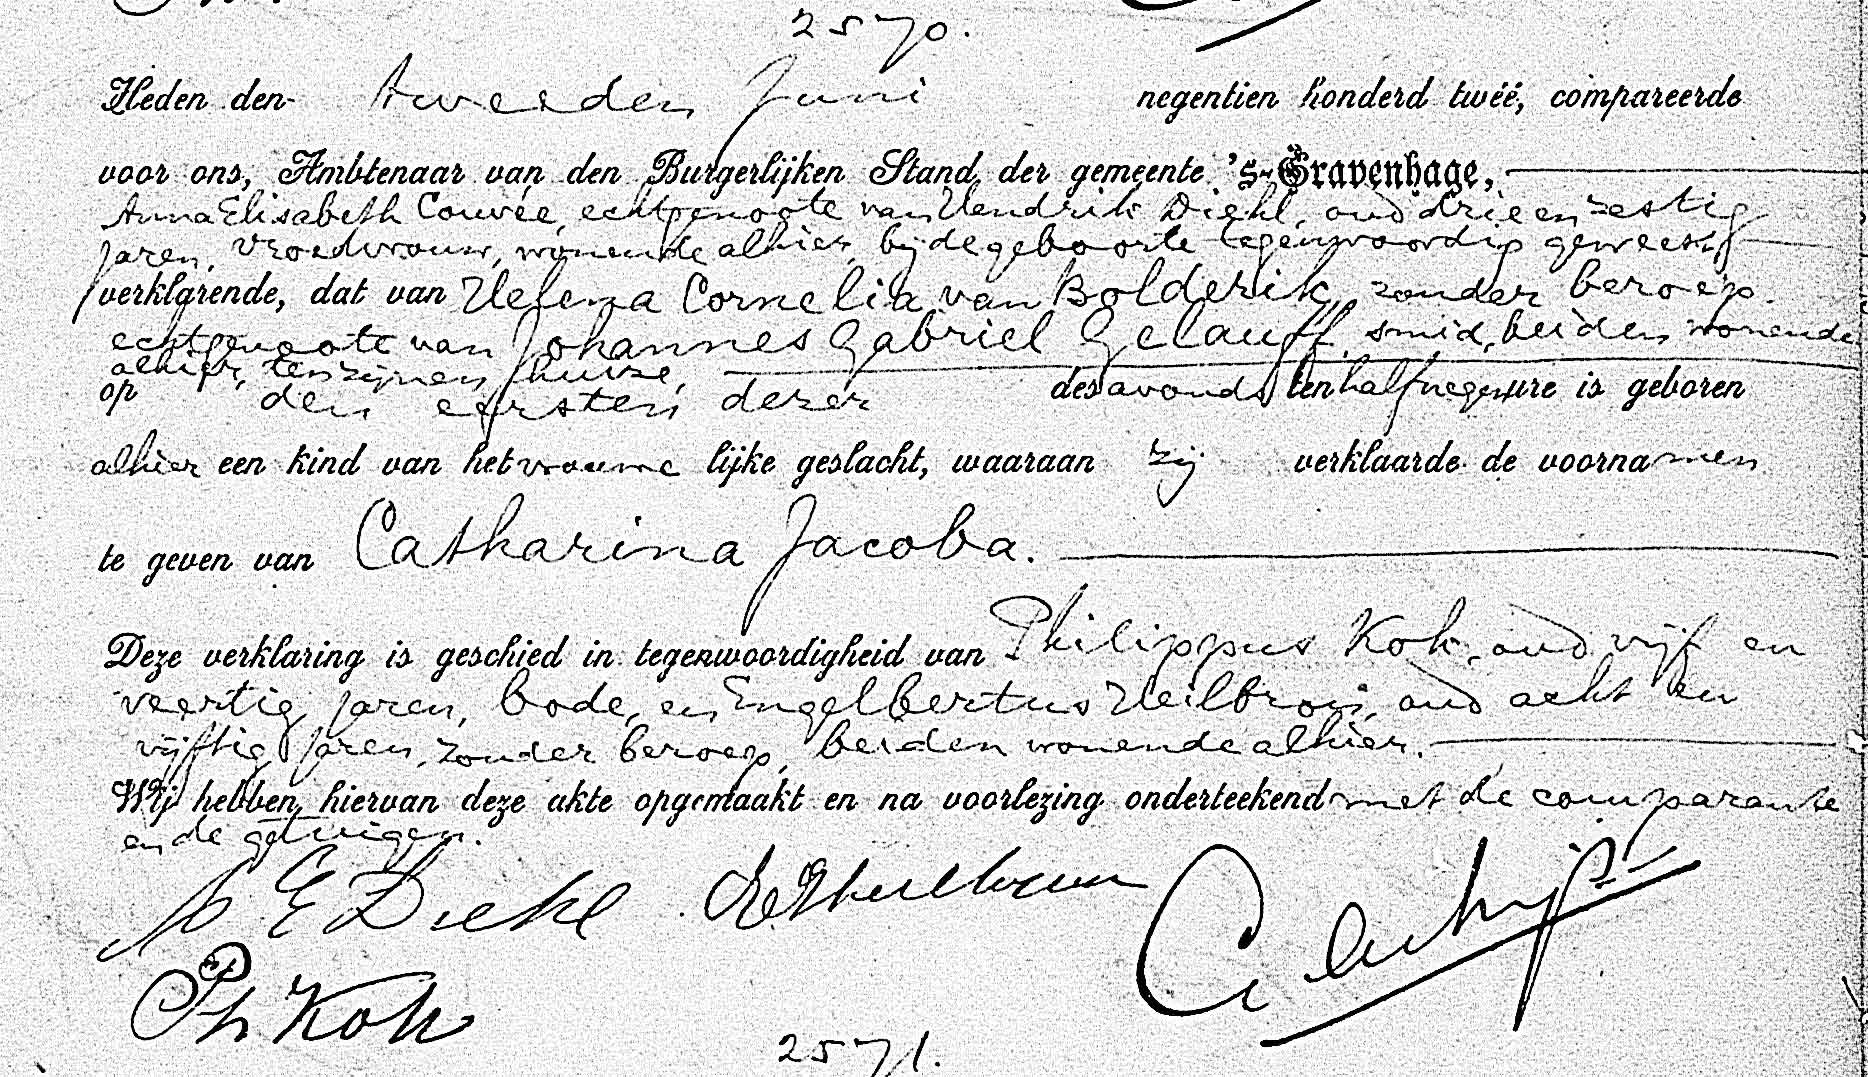 2570.
Heden den tweeden Juni negentien honderd twéé, compareerde
voor ons, Ambtenaar van den Burgerlijken Stand der gemeente 's-Gravenhage,
Anna Elisabeth Couvée, echtgenoote van Hendrik Diehl, oud drie en zestig
jaren, vroedvrouw, wonende alhier, bij de geboorte tegenwoordig geweest
verklarende, dat van Helena Cornelia van Bolderik, zonder beroep.
echtgenoote van Johannes Gabriel Gelauff, smid, beiden wonende
alhier, ten zijnen huize,
op den eersten dezer des avonds ten half negen ure is geboren
alhier een kind van het vrouwelijke geslacht, waaraan zij verklaarde de voornamen
te geven van Catharina Jacoba.
Deze verklaring is geschied in tegenwoordigheid van Philippus Kok, oud vijf en
veertig jaren, bode, en Engelbertus Heilbron, oud acht en
vijftig jaren, zonder beroep, beiden wonende alhier.
Wij hebben hiervan deze akte opgemaakt en na voorlezing onderteekend met de comparante
en de getuigen.
E Diehl
Ph Kok
2571.